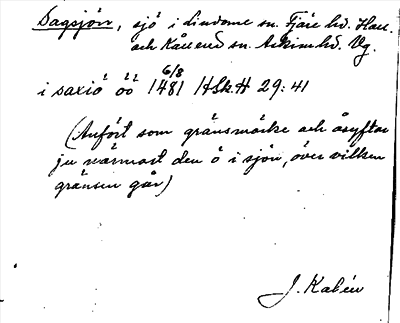 Dagsjön, sjö i Lindome sn. Fjäre hd. Hall.
och Kållered sn. Askim hd. Vg.
6/8
i saxiö öö 1481 HSkH 29:41
(Anfört som gränsmärke och åsyftar
ju närmast den ö i sjön, över vilken
gränsen går)
J. Kalén